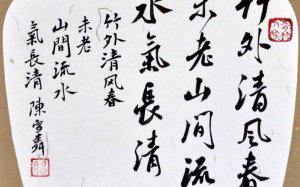 竹外清风春
未老山间流
水氣長清
竹外清风春
未老
山間流水
氣長清 陳雪